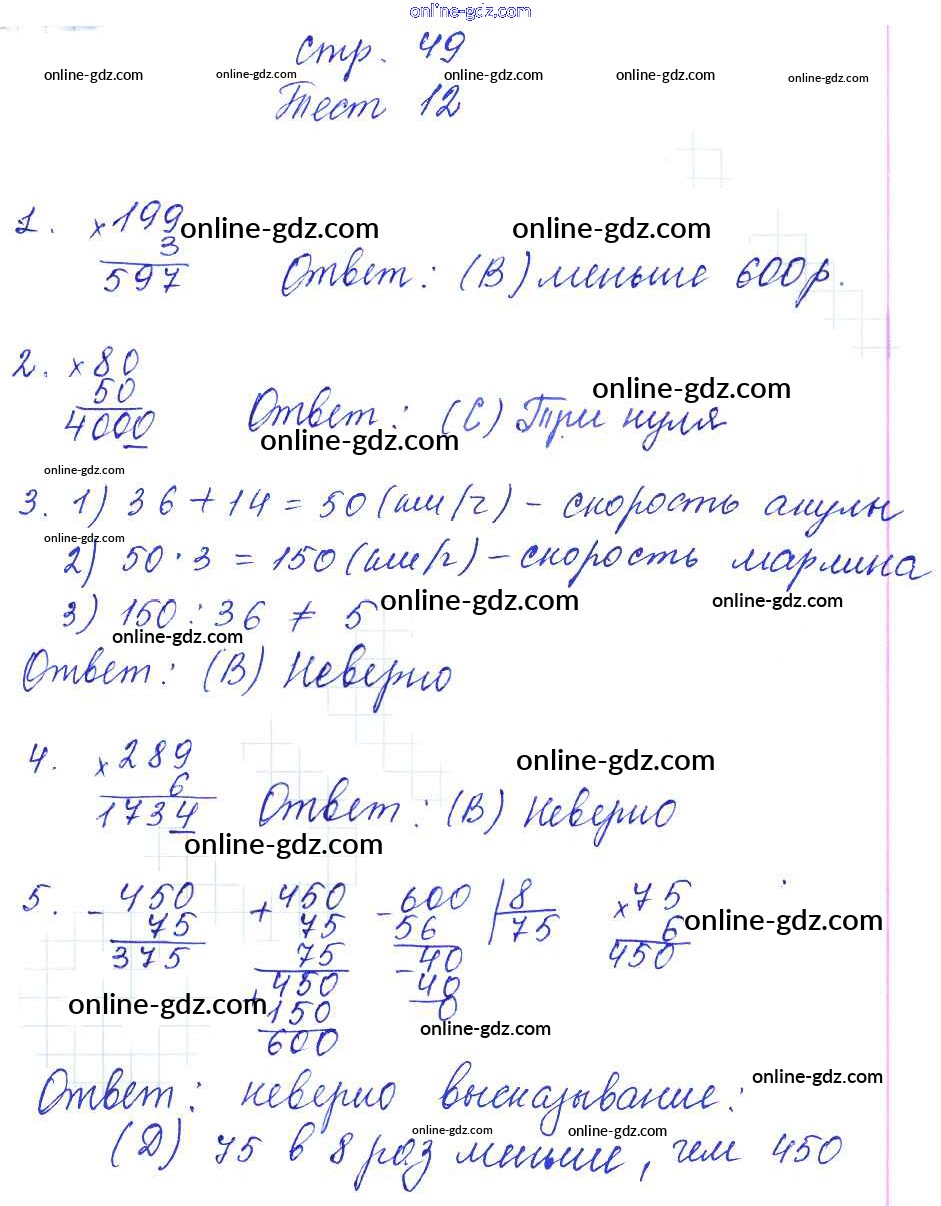 online-gdz.com
стр. 49
online-gdz.com online-gdz.com online-gdz.com online-gdz.com online-gdz.com
Тест 12
1. × 199 online-gdz.com online-gdz.com
3
597 Ответ: (В) меньше 600р.
2. × 80
50 online-gdz.com
4000 Ответ: (С) Три нуля
online-gdz.com
online-gdz.com
3. 1) 36 + 14 = 50 (км/г) - скорость акулы
online-gdz.com
2) 50 · 3 = 150 (км/г) - скорость марлина
3) 150 : 36 ≠ 5 online-gdz.com online-gdz.com
online-gdz.com
Ответ: (В) Неверно
4. × 289 online-gdz.com
6
1734 Ответ: (В) Неверно
online-gdz.com
5. - 450 + 450 - 600 | 8 × 75
75 75 56 75 6 online-gdz.com
375 75 - 40 450
+ 450 40
online-gdz.com 150 0
600 online-gdz.com
online-gdz.com
Ответ: неверно высказывание:
online-gdz.com online-gdz.com
(D) 75 в 8 раз меньше, чем 450